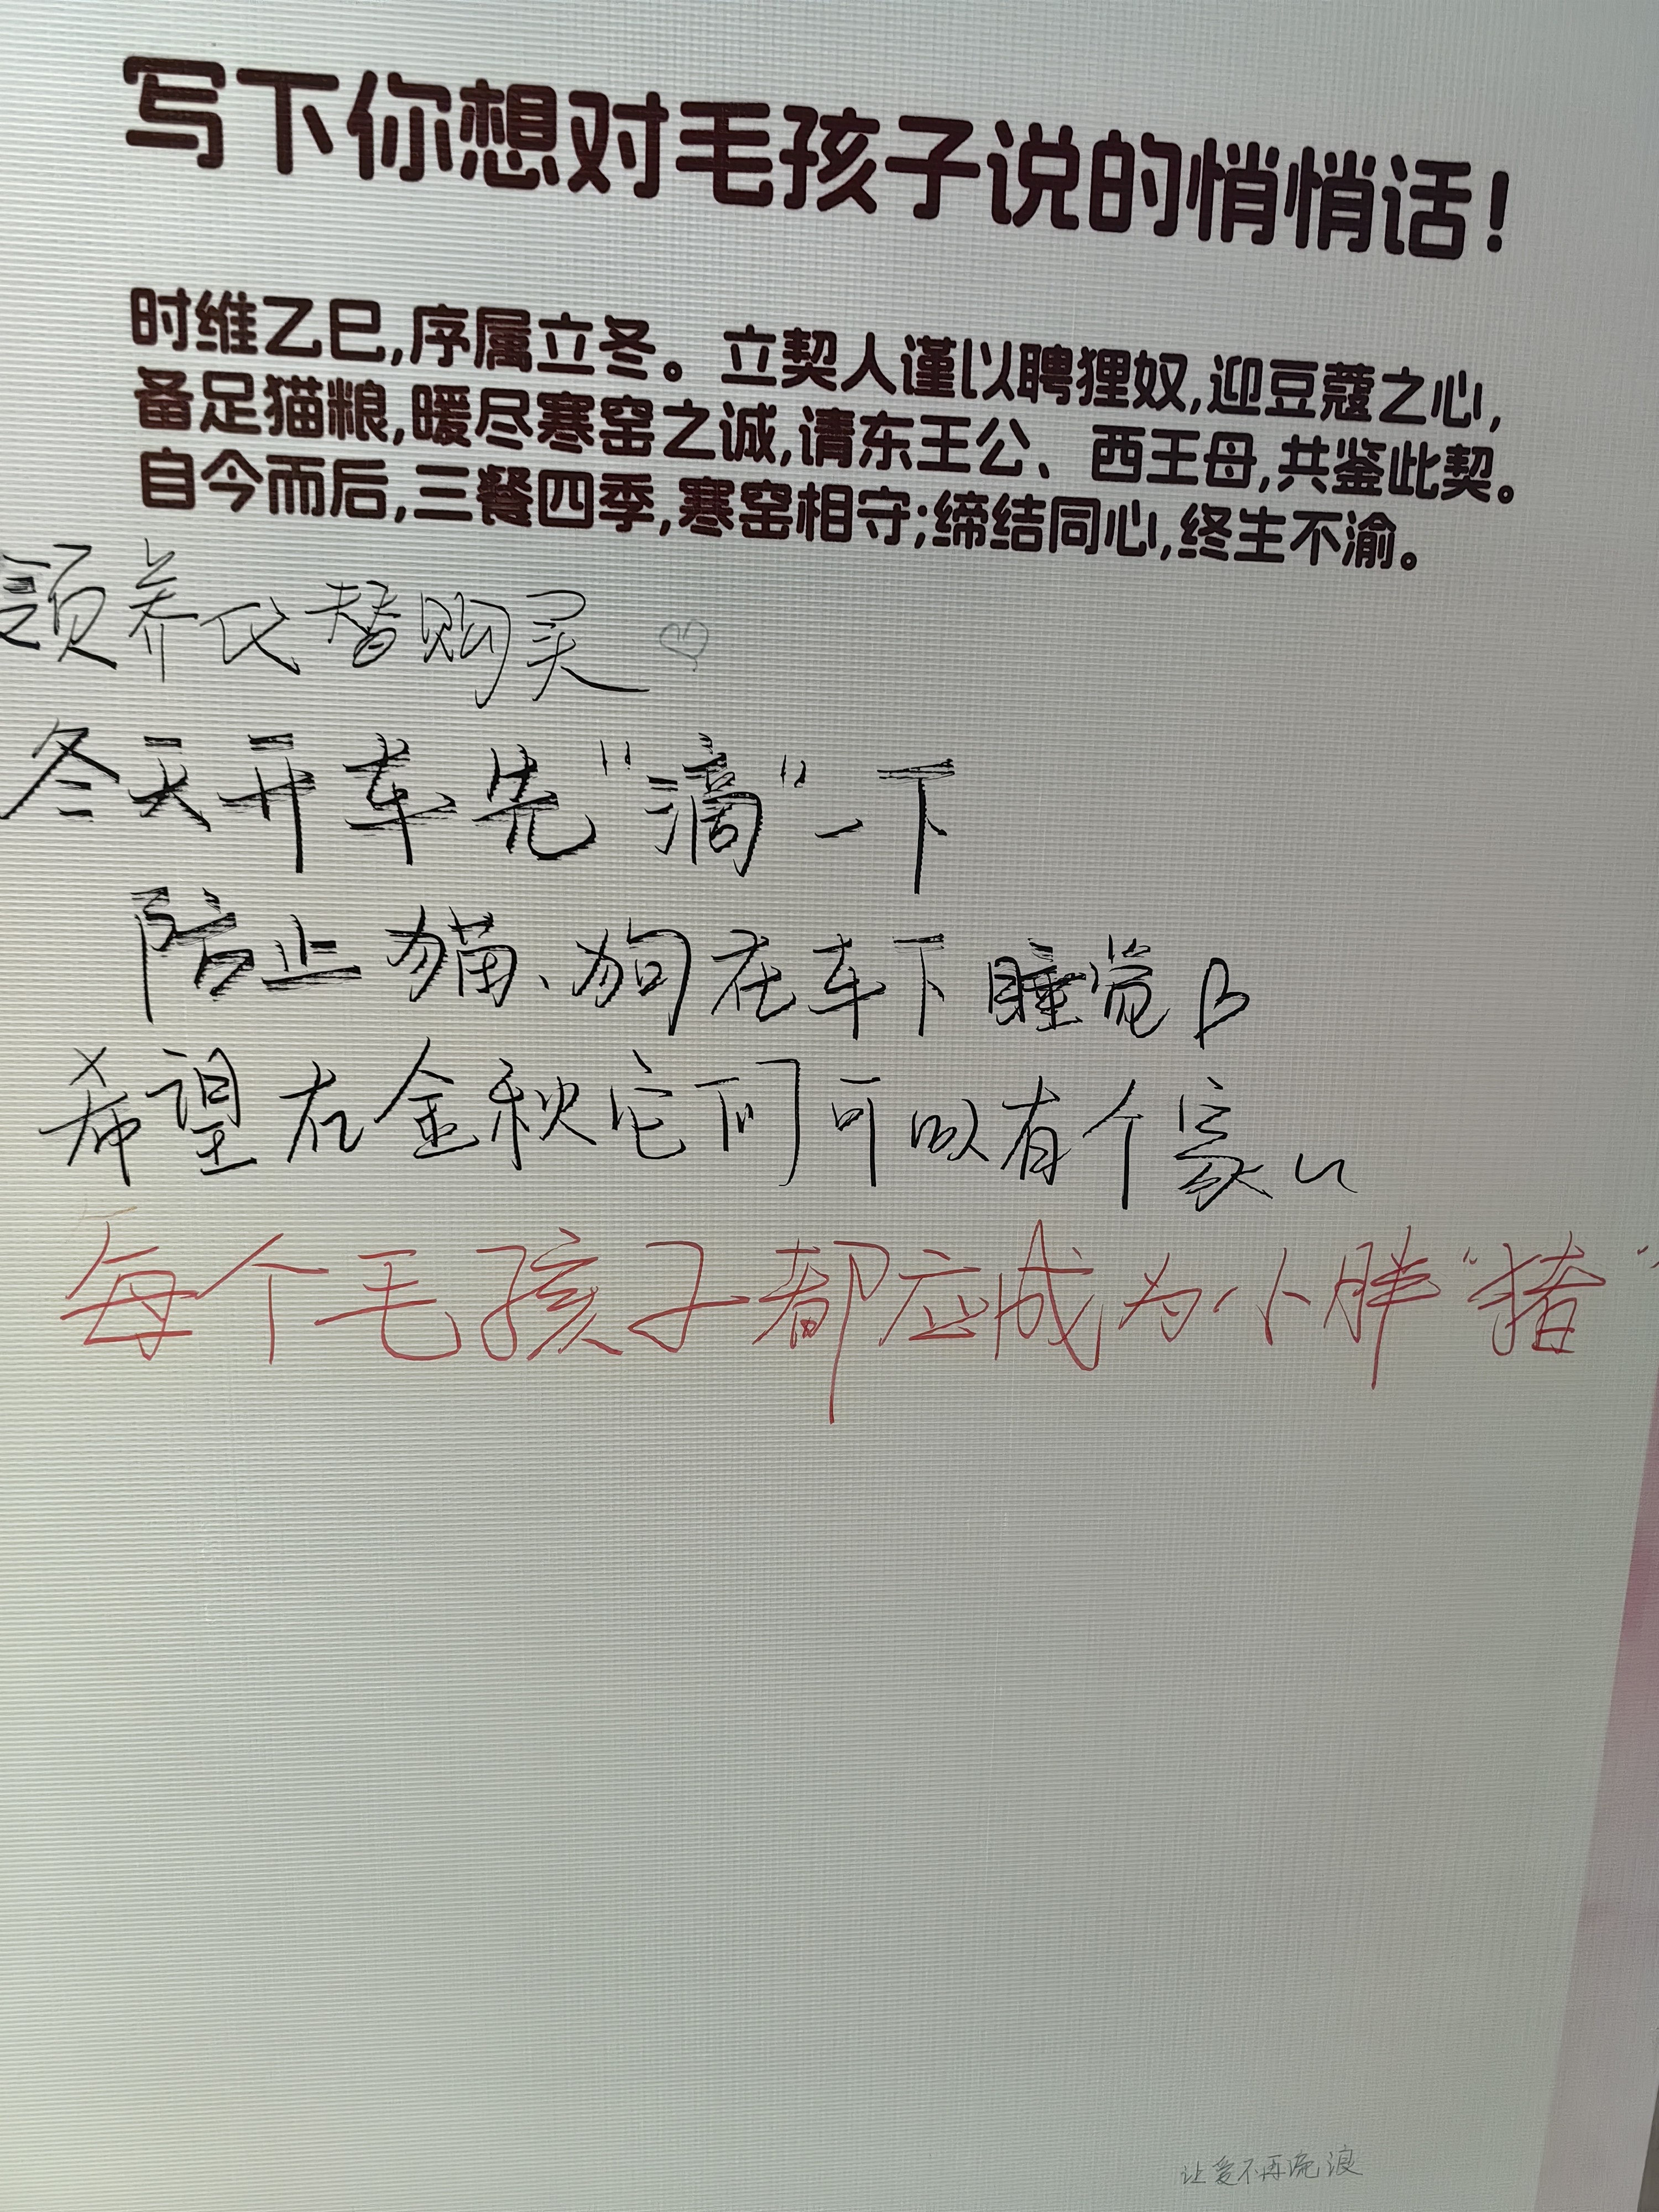 写下你想对毛孩子说的悄悄话!
时维乙巳,序属立冬。立契人谨以聘狸奴,迎豆蔻之心,
备足猫粮,暖尽寒窑之诚,请东王公、西王母,共鉴此契。
自今而后,三餐四季,寒窑相守;缔结同心,终生不渝。
领养代替购买
冬天开车先“滴”一下
防止猫、狗在车下睡觉
希望在金秋它们可以有个家
每个毛孩子都应成为小胖“猪”
让爱不再流浪